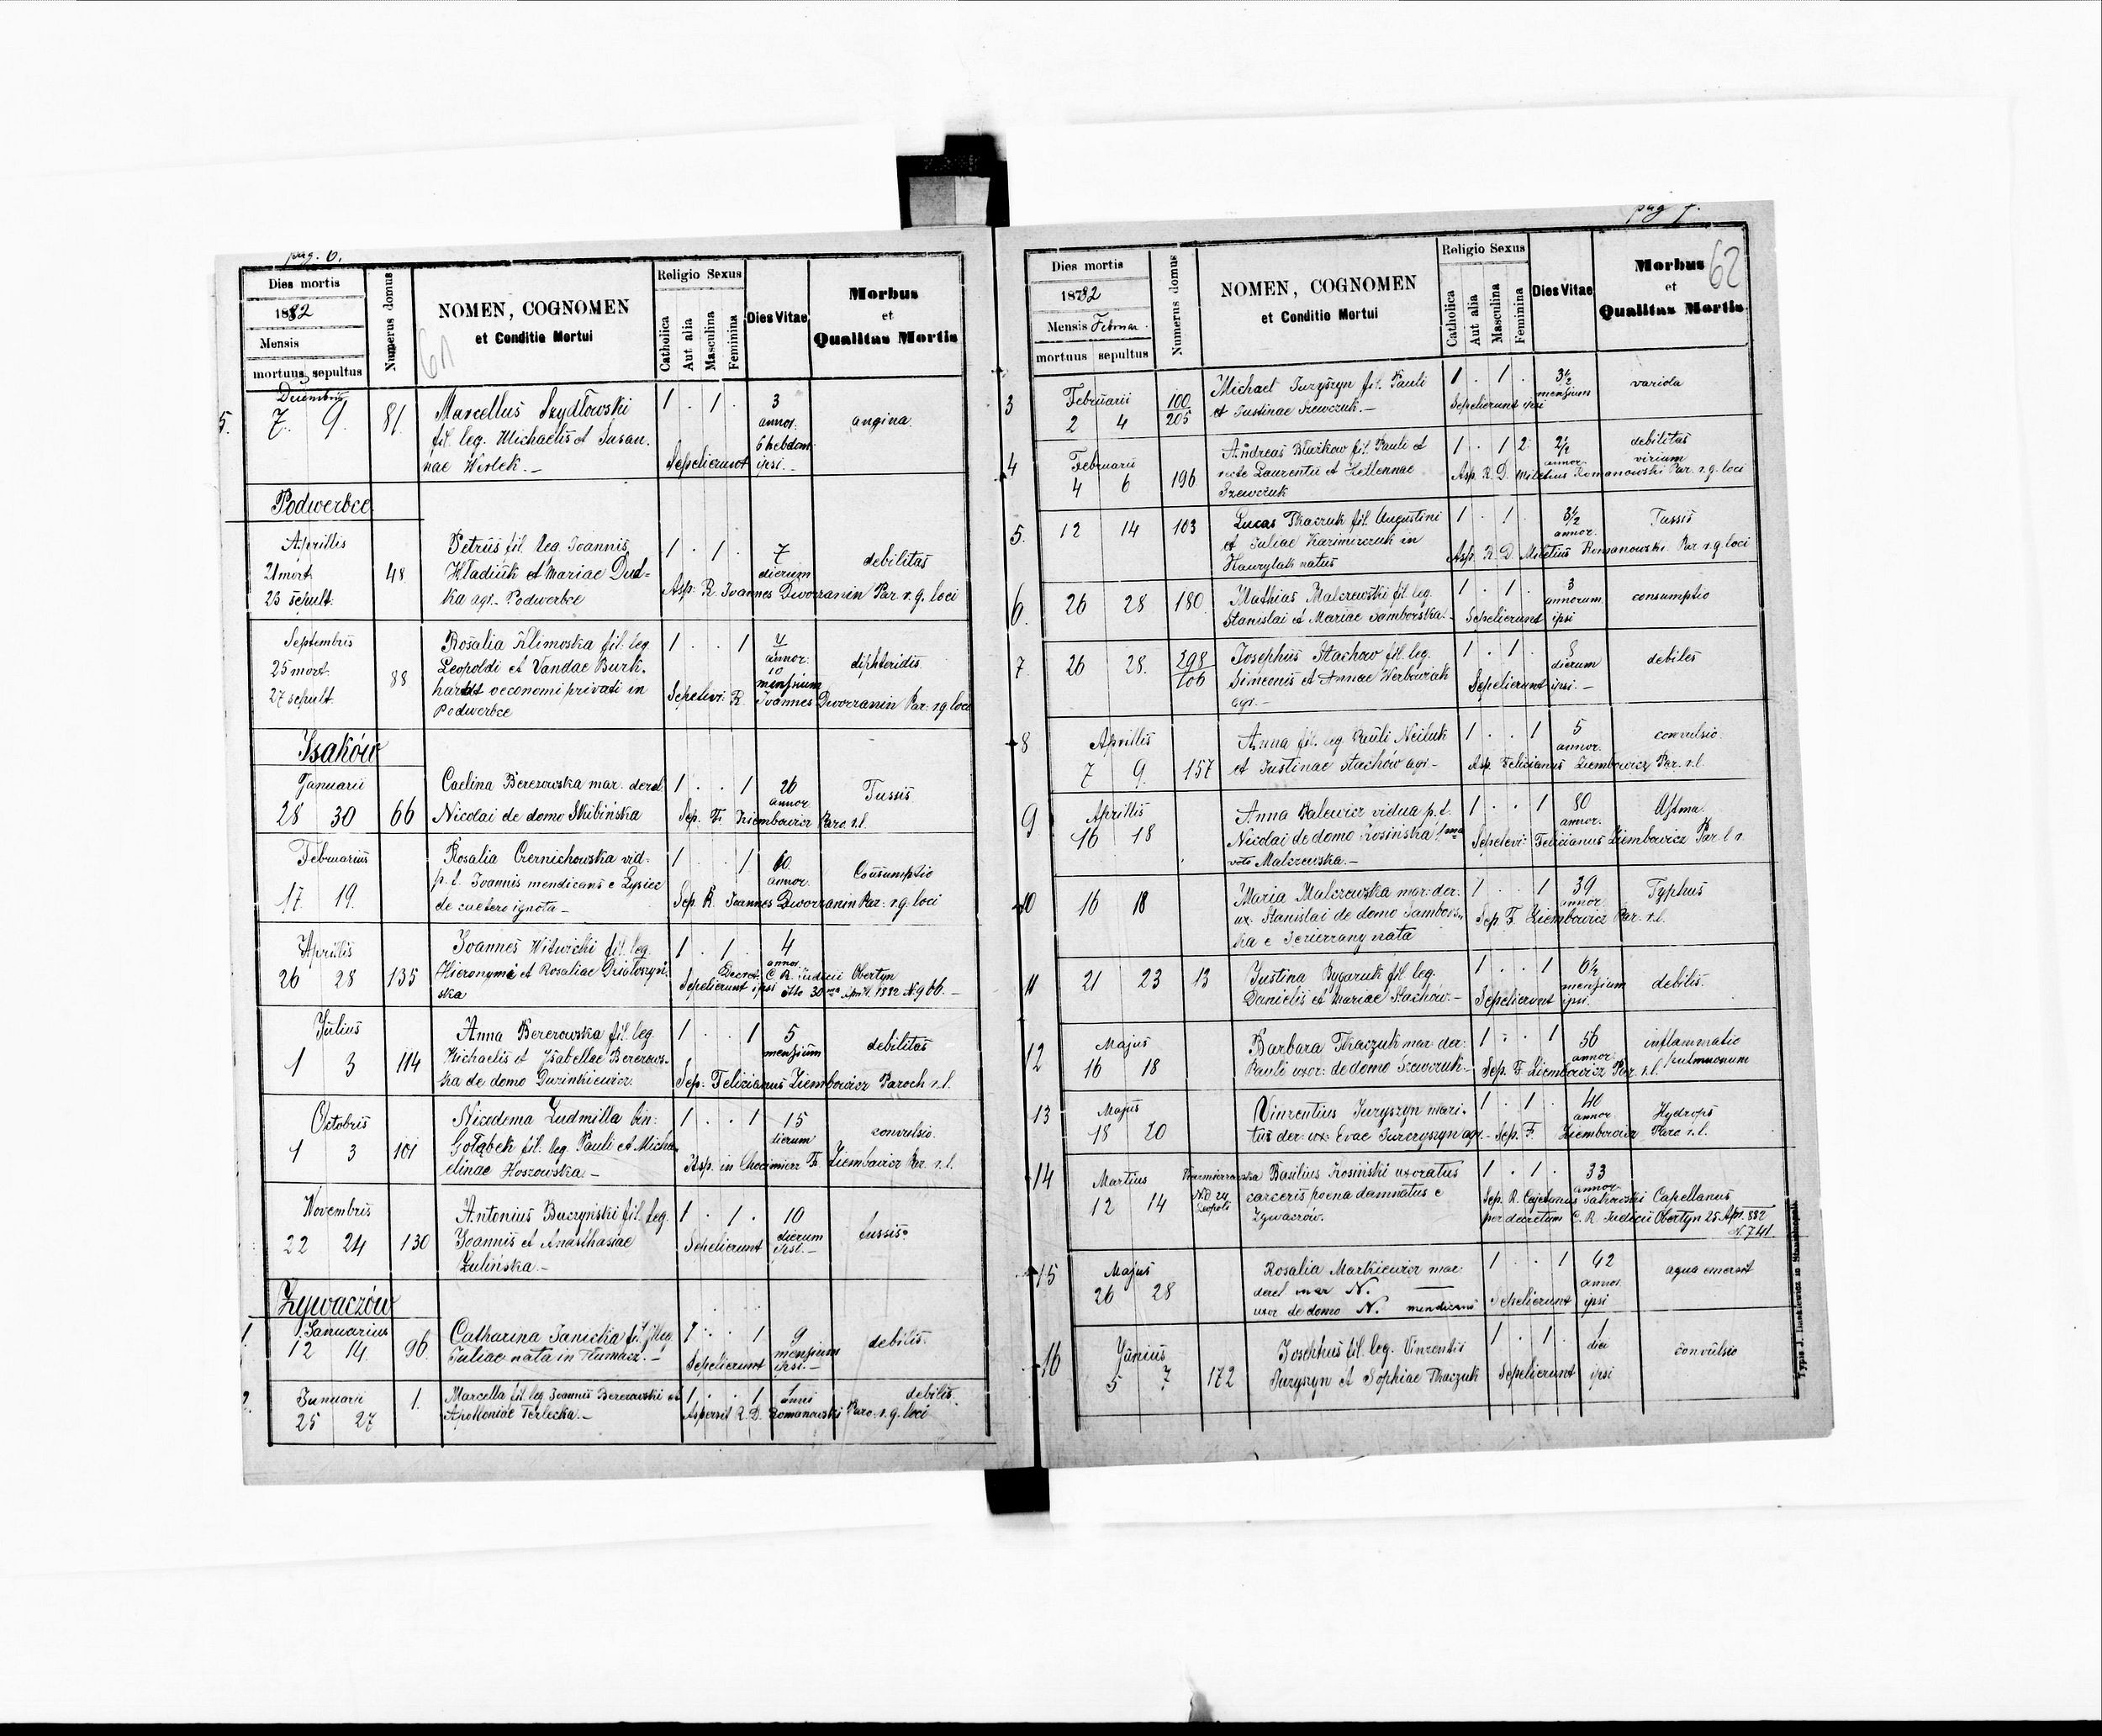 pag. 6.
Dies mortis
1882
Mensis
mortuus sepultus
Numerus domus
NOMEN, COGNOMEN
et Conditio Mortui
61
Religio Sexus
Catholica
Aut alia
Masculina
Feminina
Dies Vitae
Morbus
et
Qualitas Mortis
Decembris
5. 7. 9. 81. Marcellus Szydłowski 1 . 1 . 3
annor. angina.
fil. leg. Michaelis et Susan. 6 hebdom.
nae Werlek. — Sepelierunt ipsi. —
Podwerbce
Aprillis Petrus fil. leg. Joannis 1 . 1 . 7 debilitas
21 mort. 48 Hladiuk et Mariae Dud= dierum
23 sepult. ka agr. Podwerbce Asp. R. Joannes Dworzanin Par. r. g. loci
Septembris Rosalia Klimoska fil. leg. 1 . . 1 4
25 mort. 88 Leopoldi et Vandae Burk. annor. 10 diphteridis
27 sepult. hardt oeconomi privati in mensium
Podwerbce Sepelevi: R. Joannes Dworzanin Par: r g loci
Isaków
Januarii Caelina Berezowska mar. derel. 1 . . 1 26 Tussis
28 30 66 Nicolai de domo Skibińska annor.
Sep. F. Ziembowicz Paro. r.l.
Februarius Rosalia Czernichowska vid. 1 . . 1 60 Consumptio
17 19. p. f. Joannis mendicans e Lysiec annor.
de caetero ignota — Sep. R. Joannes Dworzanin Par: r g. loci
Aprilis Joannes Witwicki fil. leg. 1 . 1 . 4
26 28 135 Hieronymi et Rosaliae annor.
ska Decret. C. R. Judicii Obertyn
Sepelierunt ipsi dto 30 April. 1882 N. 966. —
Julius Anna Berezowska fil. leg. 1 . . 1 5 debilitas
1 3 114 Michaelis et Isabellae Berezows- mensium
ka de domo Sep: Felizianus Ziembowicz Paroch r.l.
Octobris Nicedema Ludmilla bin: 1 . . 1 15 convulsio.
1 3 101 Gołąbek fil. leg. Pauli et Micha- dierum
elinae Hoszowska — Asp. in Chocimierz F. Ziembowicz Par. r. l.
Novembris Antonius Buczyński fil. leg. 1 . 1 . 10 tussis.
22 24 130 Joannis et Anasthasiae dierum
Zulińska. — Sepelierunt ipsi. —
Żywaczów
1. Januarius Catharina Janicka fil. illeg. 1 . . 1 9 debilis.
12 14. 96. Juliae nata in Tłumacz. — mensium
Sepelierunt ipsi. —
2. Januarii 1. Marcella fil. leg. Joannis Berezowski et 1 . . 1 1 anni debilis.
25 27 Apolloniae Terlecka. — Aspersit R. D. Romanowski Paro. r. g. loci
pag 7.
62
Dies mortis
1882
Mensis Februar.
mortuus sepultus
Numerus domus
NOMEN, COGNOMEN
et Conditio Mortui
Religio Sexus
Catholica
Aut alia
Masculina
Feminina
Dies Vitae
Morbus
et
Qualitas Mortis
3 Februarii 100 Michael Juzyszyn fil. Pauli 1 . 1 . 3½ variola
2 4 205 et Justinae Szewczuk. — mensium
Sepelierunt ipsi
4 Februarii Andreas Bluzkow fil. Pauli et 1 . 1 2. 2½ debilitas
4 6 196 recte Laurentii et Hellennae annor. virium
Szewczuk Asp. R. D. Miletius Romanowski Par. r. g. loci
5. 12 14 103 Lucas Tkaczuk fil. Augustini 1 . 1 . 3½ Tussis
et Juliae Kazimirczuk in annor.
Hawrylak natus Asp. R. D. Miletius Romanowski. Par r. g. loci
6. 26 28 180. Mathias Malczewski fil. leg. 1 . 1 . 3 consumptio
Stanislai et Mariae Samborska. annorum
Sepelierunt ipsi
7. 26 28. 298 Josephus Stachow fil. leg. 1 . 1 . 8 debiles
106 Simeonis et Annae Werbowiak dierum
agr. — Sepelierunt ipsi. —
8 Aprillis Anna fil. leg Pauli Neiluk 1 . . 1 5 convulsio.
7 9. 157 et Justinae Stachów agr — annor.
Asp. Felicianus Ziembowicz Par. r.l.
9 Aprillis Anna Balewicz vidua p. f. 1 . . 1 80 Astma.
16 18 Nicolai de domo Kosińska 1mo annor.
voto Malczewska. — Sepelevi: Felicianus Ziembowicz Par. l r.
10 16 18 Maria Malczewska mar: der: 1 . . 1 39 Typhus
ux: Stanislai de domo Sambors- annor.
ka e Jezierzany nata Sep. F. Ziembowicz Par. r.l.
11 21 23 13 Justina Bygaruk fil leg. 1 . . 1 6½ debilis.
Danielis et Mariae Stachów. — mensium
Sepelierunt ipsi.
12 Majus Barbara Tkaczuk mar: der: 1 . . 1 56 inflammatio
16 18 Pauli uxor: de domo Szewczuk. — annor. pulmonum
Sep. F. Ziembowicz Par. r.l.
13 Majus Vinzentius Juzyszyn mari. 1 . 1 . 40 Hydrops
18 20 tus der: ux: Evae agr. — annor.
Sep. F. Ziembowicz Paro r.l.
14 Martius Basilius Kosiński uxoratus 1 . 1 . 33
12 14 carceris poena damnatus e annor.
Żywaczów. Sep. R. Cajetanus Capellanus
per decretum C. R. Judicii Obertyn 25 Apr. 882
N. 741.
15 Majus Rosalia Markiewicz mar: 1 . . 1 42 aqua emersit
26 28 derel mar N. — annor.
uxor de domo N. mendicans Sepelierunt ipsi
16 Junius Josephus fil. leg. Vinzentii 1 . 1 . 1 convulsio
5 7 172 Juzyszyn et Sophiae Tkaczuk diei
Sepelierunt ipsi